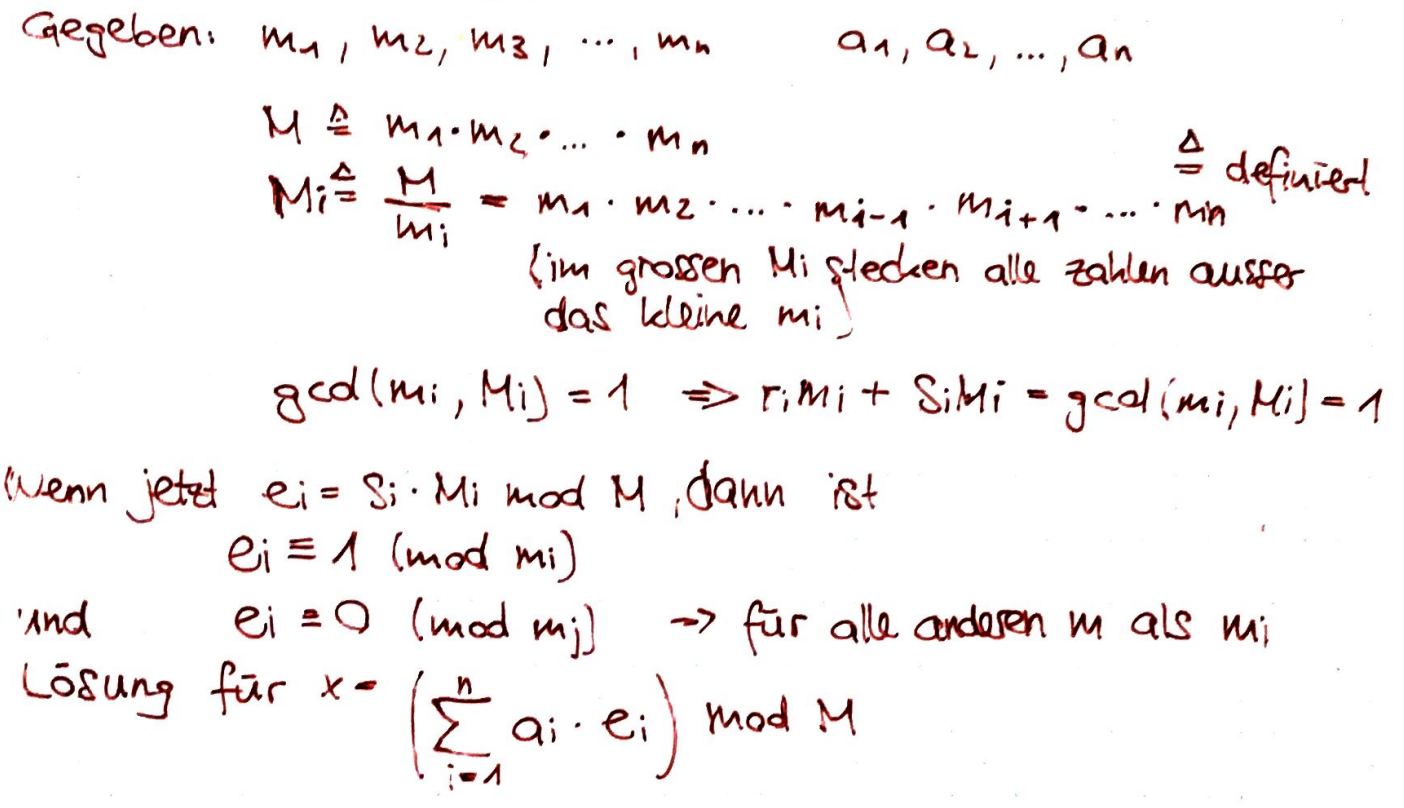 Gegeben: m₁, m₂, m₃, ..., mₙ a₁, a₂, ..., aₙ
M ≙ m₁·m₂·...·mₙ
≙ definiert
Mᵢ ≙ M/mᵢ = m₁·m₂·...·mᵢ₋₁·mᵢ₊₁·...·mₙ
(im grossen Mi stecken alle zahlen ausser
das kleine mi)
gcd(mᵢ, Mᵢ) = 1 => rᵢmᵢ + SᵢMᵢ = gcd(mᵢ, Mᵢ) = 1
Wenn jetzt eᵢ = Sᵢ·Mᵢ mod M, dann ist
eᵢ ≡ 1 (mod mᵢ)
und eᵢ ≡ 0 (mod mⱼ) -> für alle anderen m als mᵢ
Lösung für x = (∑ᵢ₌₁ⁿ aᵢ·eᵢ) mod M